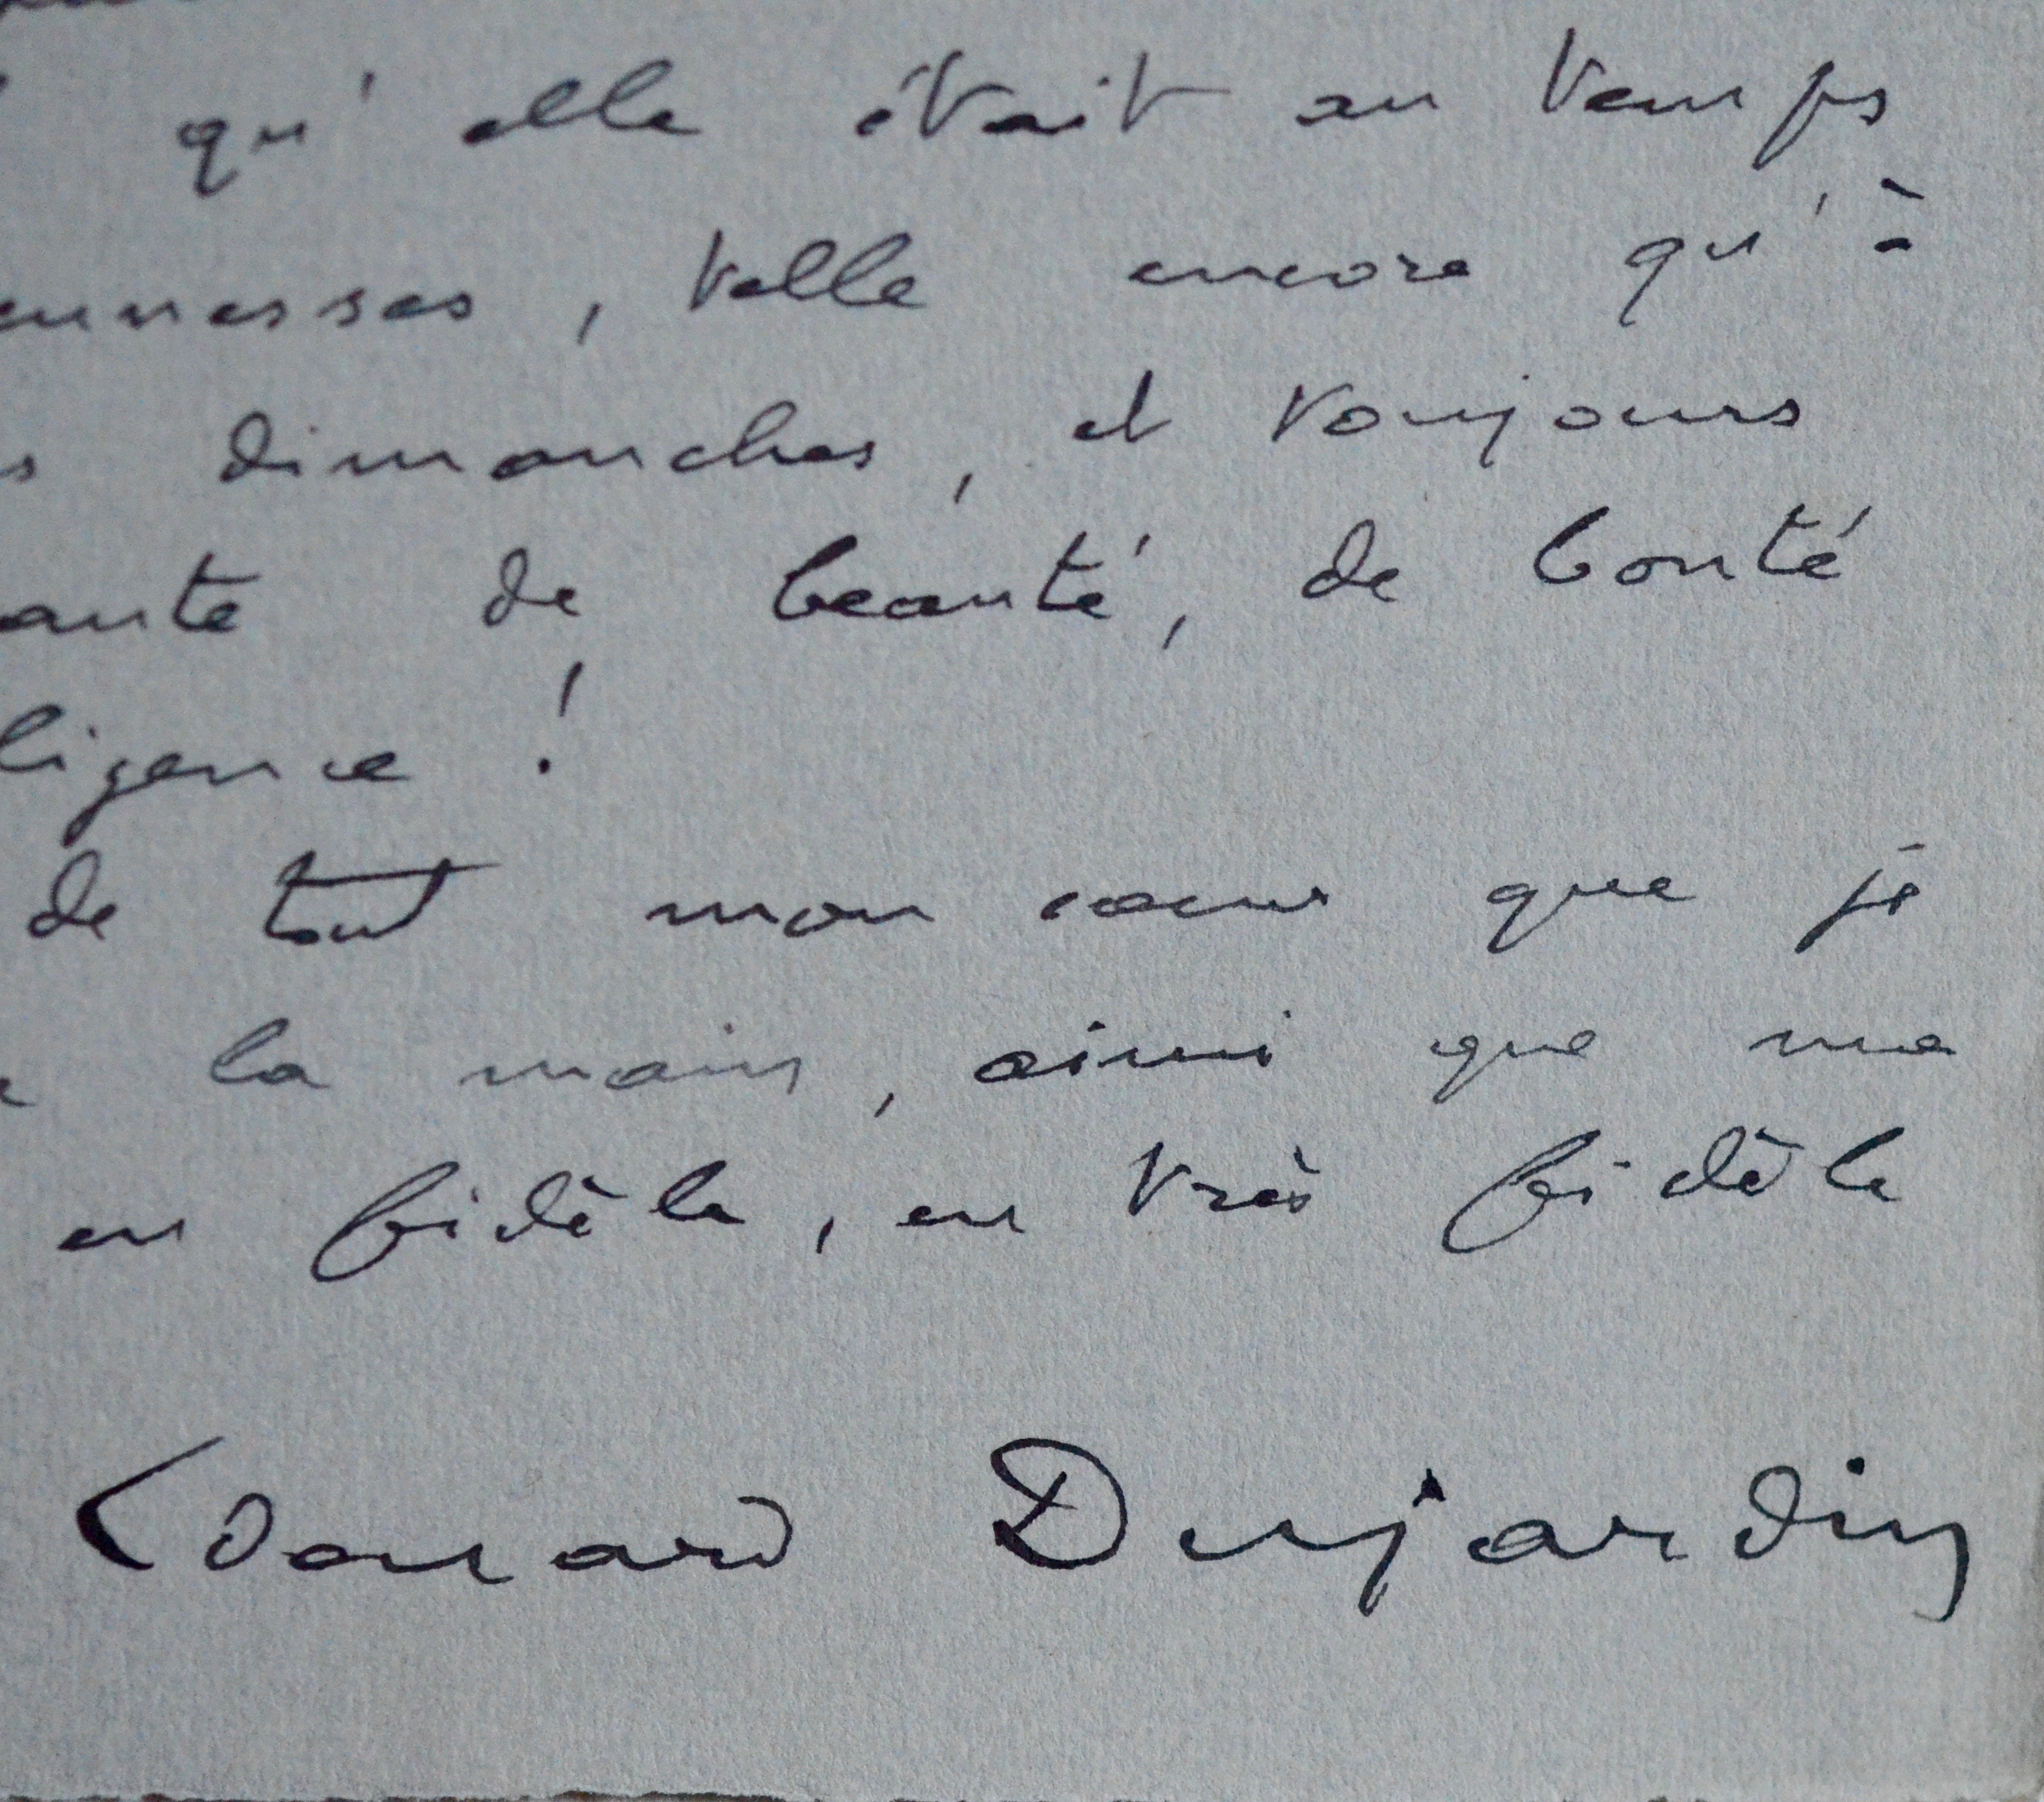 qu'elle était au temps
eunesses, telle encore qu'à
s dimanches, et toujours
ante de beauté, de bonté
ligence !
de tout mon coeur que je
la main, ainsi que ma
en fidèle, en très fidèle
Edouard Dujardin